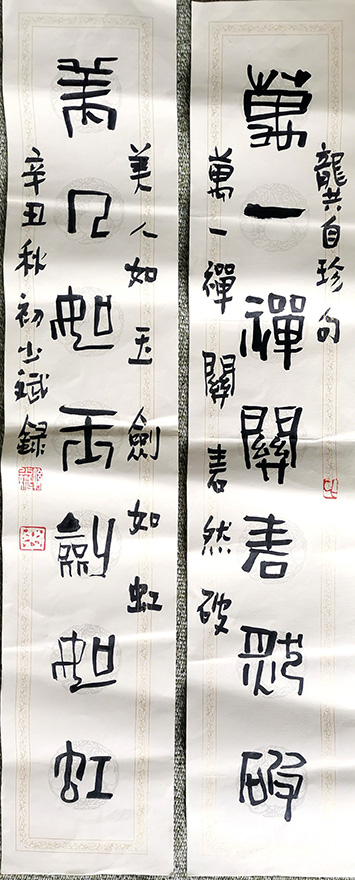 龔自珍句
萬一禪關砉然破
萬一禪關砉然破
美人如玉劍如虹
美人如玉劍如虹
辛丑秋初少斌録